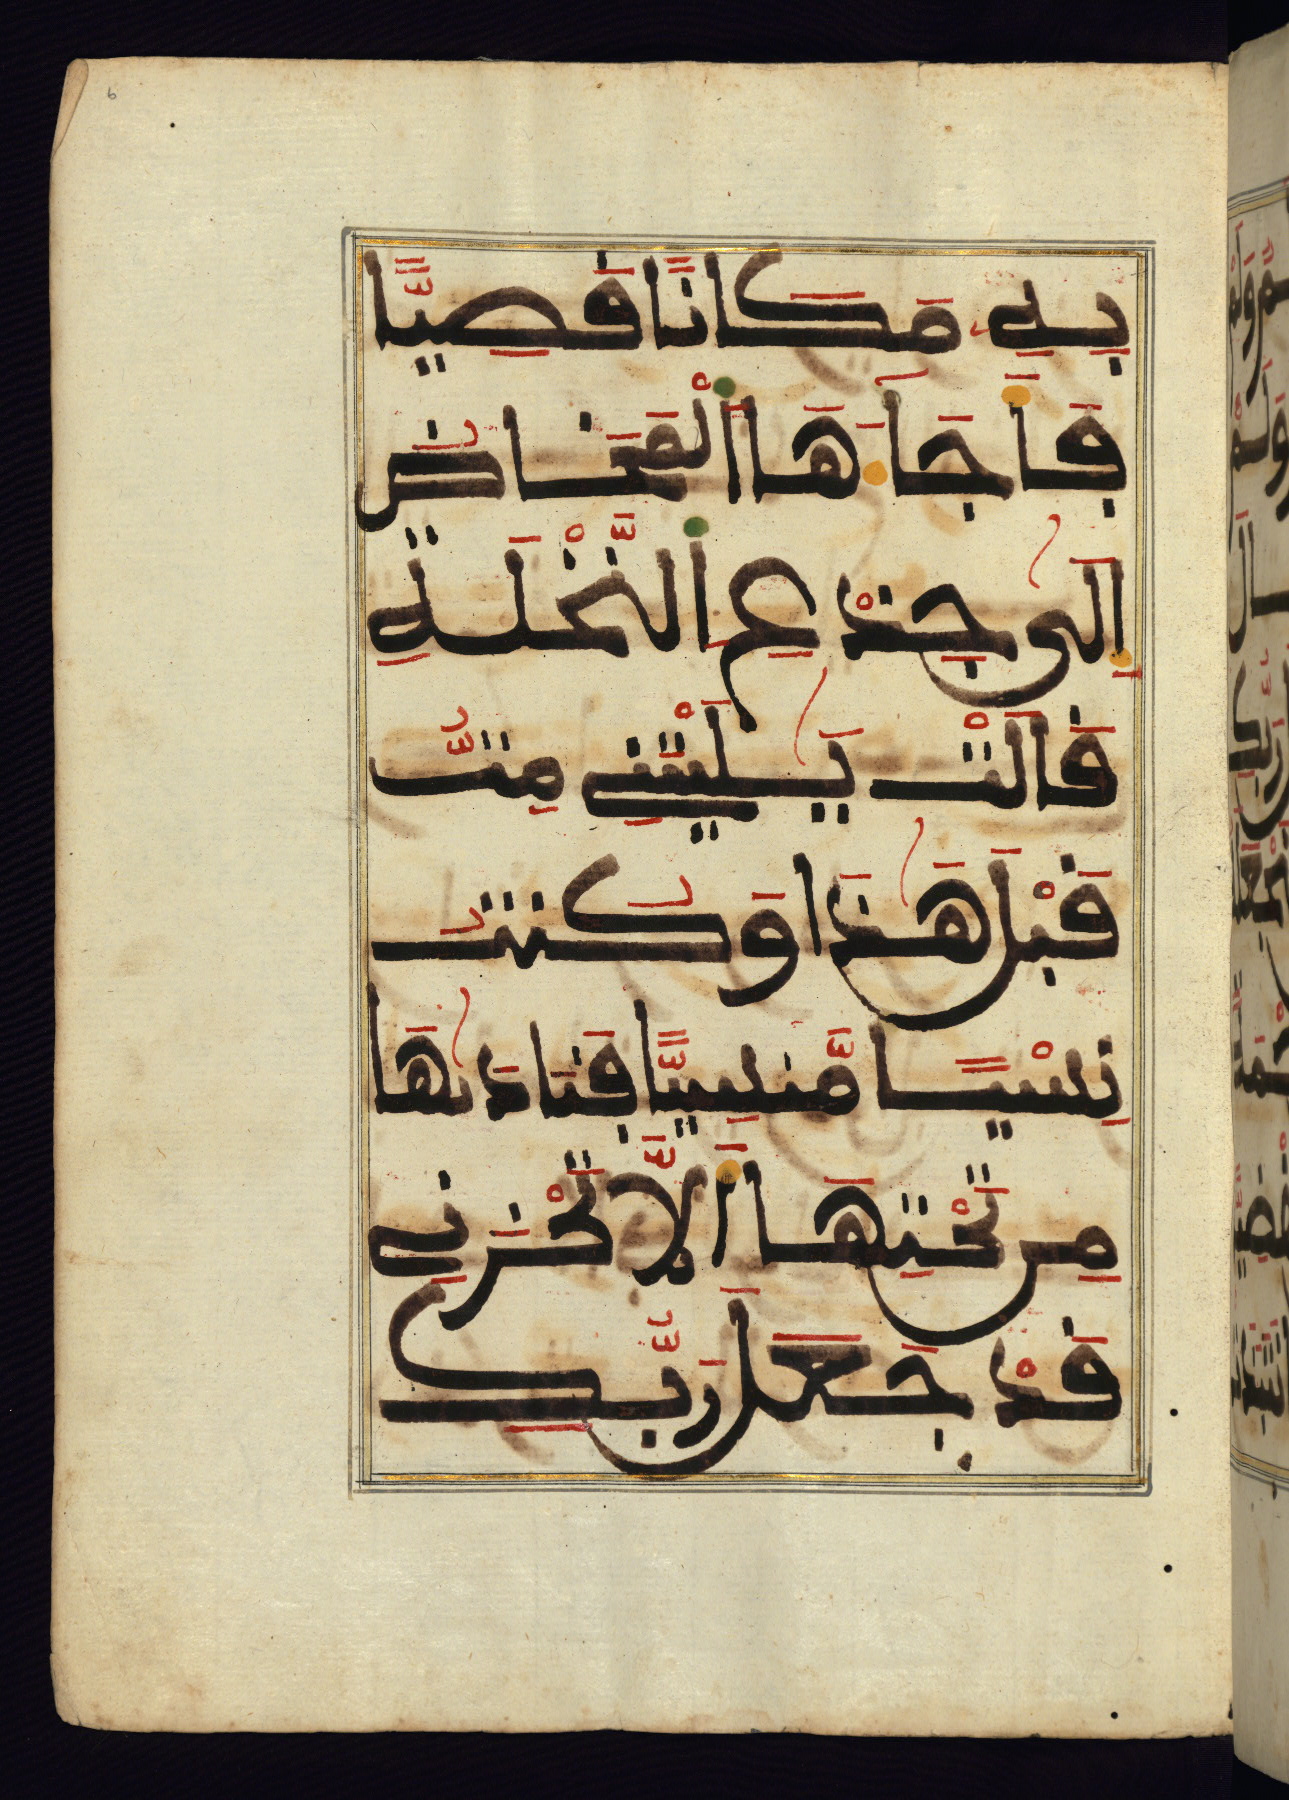 6
بِهِ مَكَانًا قَصِيًّا
فَأَجَآءَهَا الْمَخَاضُ
إِلَىٰ جِذْعِ النَّخْلَةِ
قَالَتْ يَٰلَيْتَنِي مِتُّ
قَبْلَ هَٰذَا وَكُنتُ
نِسْيًا مَّنسِيًّا فَنَادَىٰهَا
مِن تَحْتِهَا أَلَّا تَحْزَنِي
قَدْ جَعَلَ رَبُّكِ